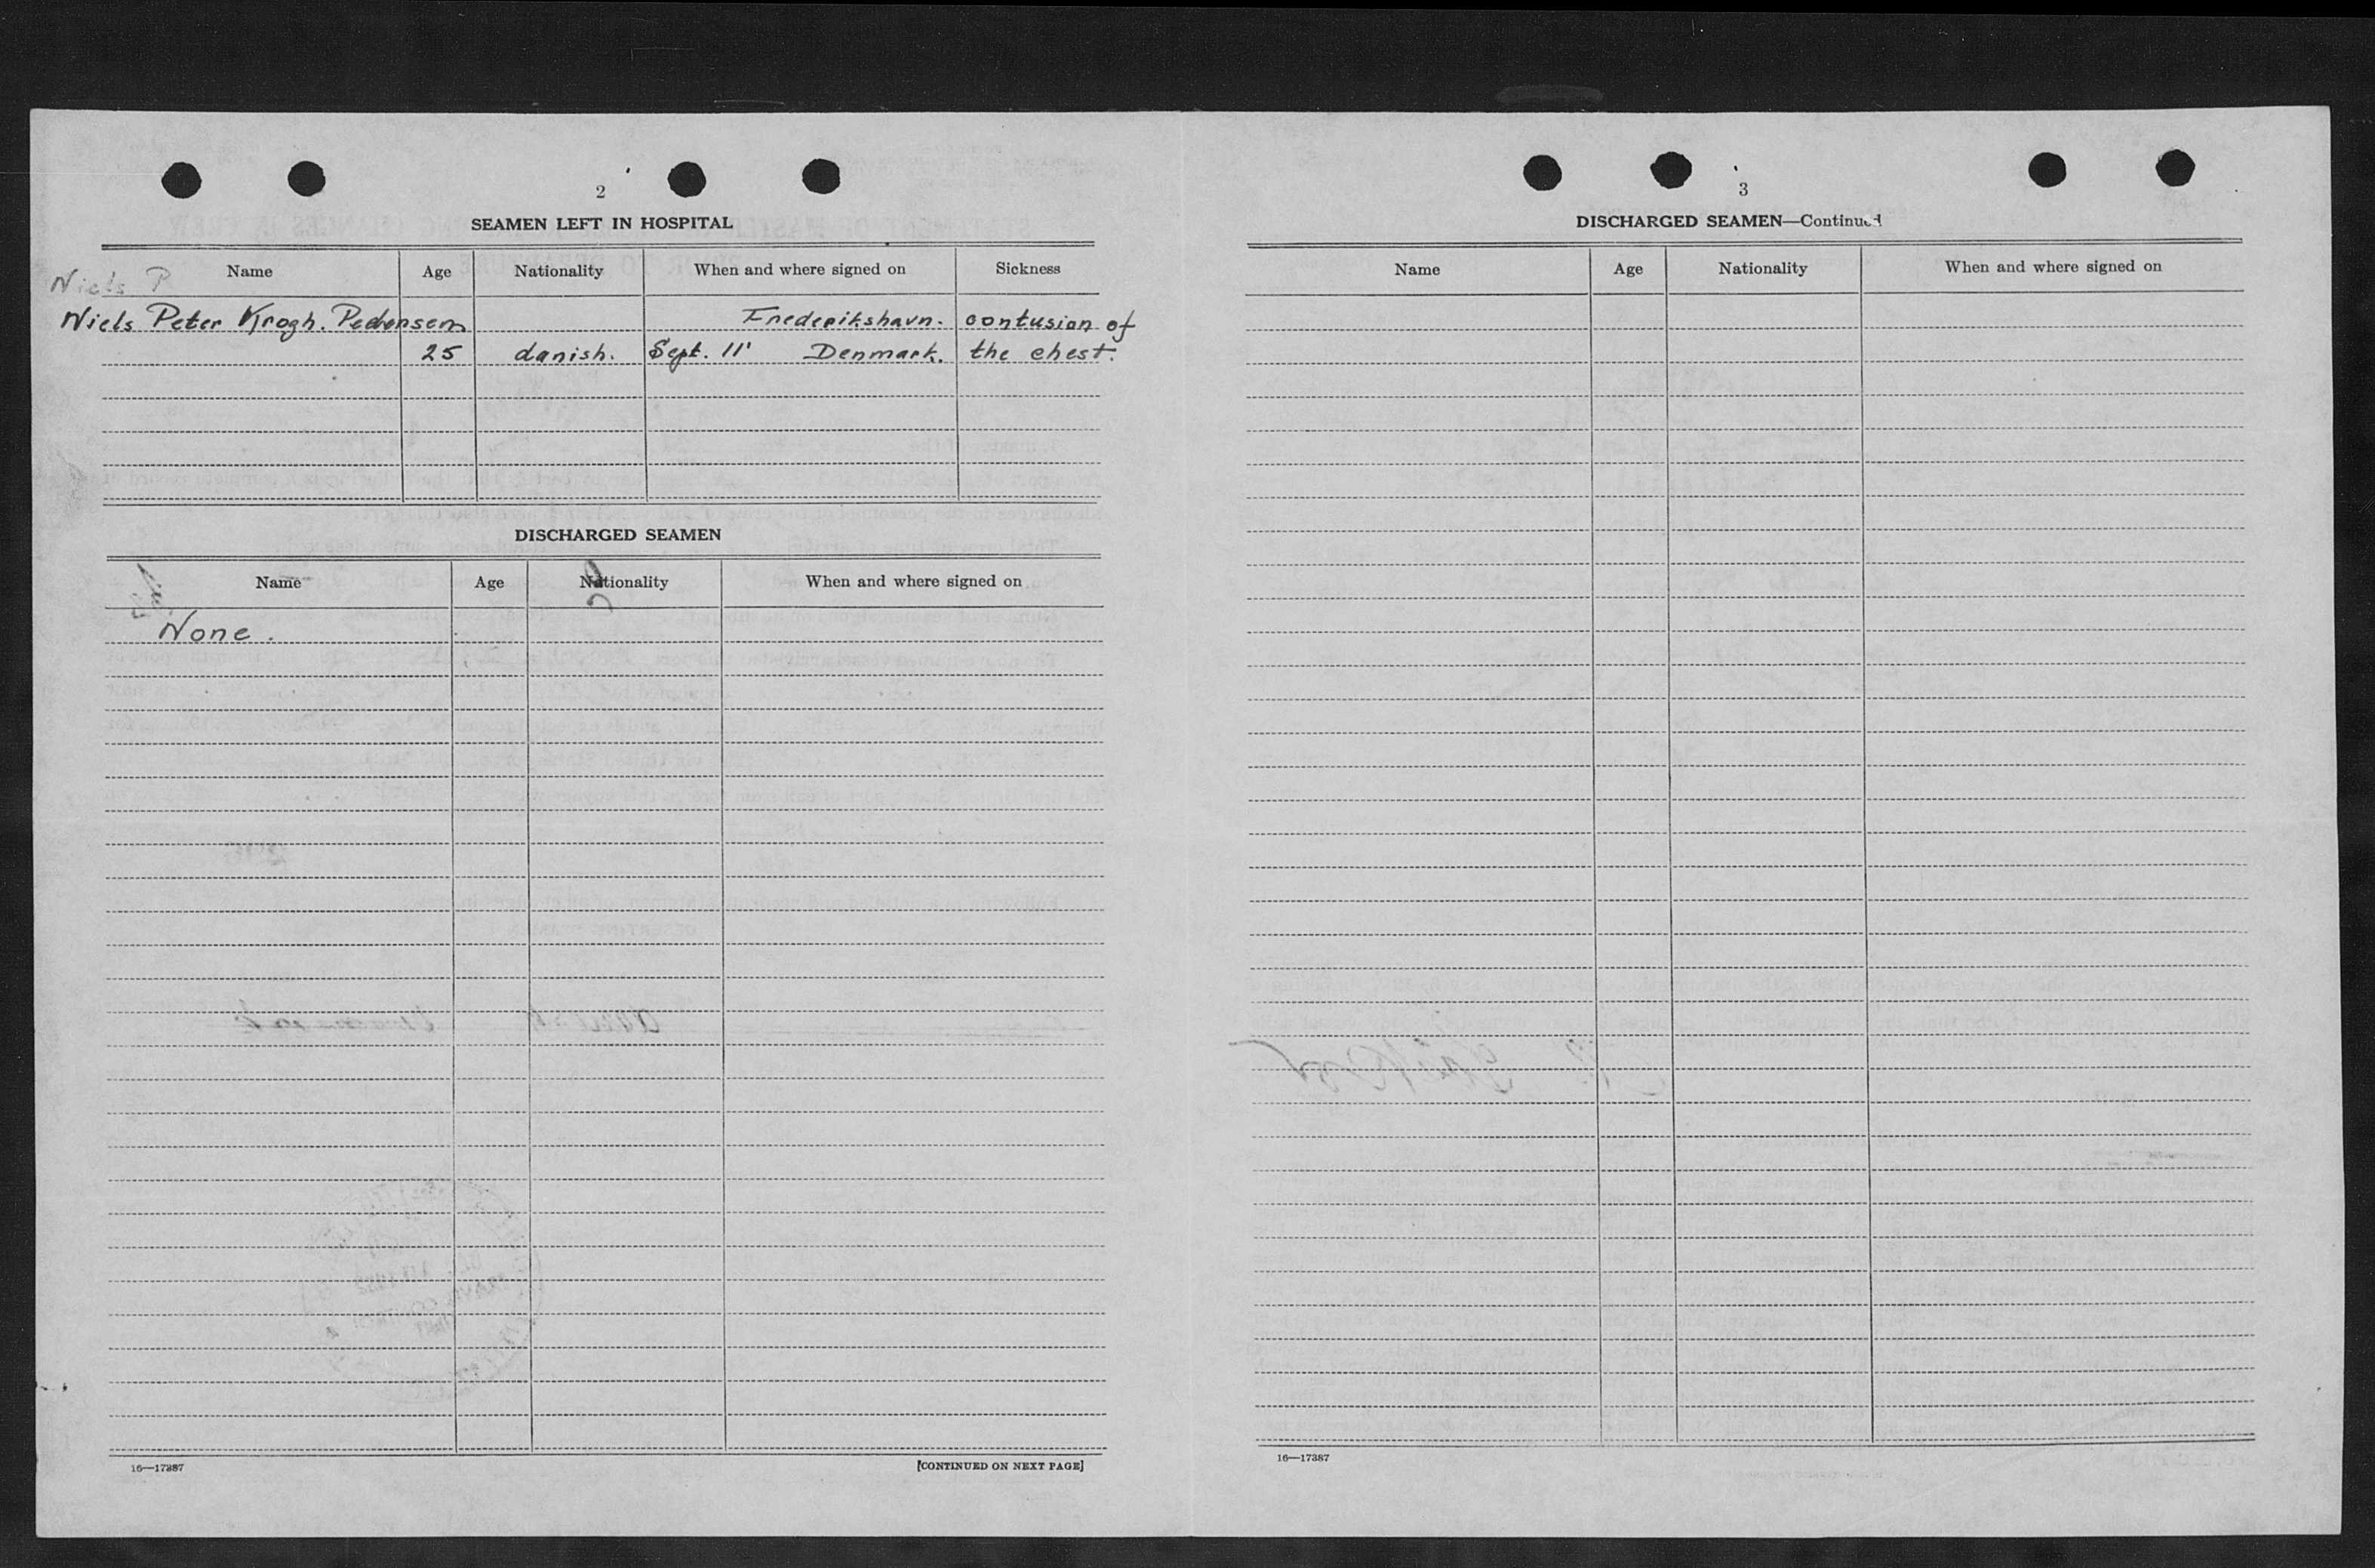 2
SEAMEN LEFT IN HOSPITAL
Name Age Nationality When and where signed on Sickness
Niels P
Niels Peter Krogh. Pedersen Frederikshavn. contusion of
25 danish. Sept. 11' Denmark. the chest.
DISCHARGED SEAMEN
Name Age Nationality When and where signed on
None.
16—17387
[CONTINUED ON NEXT PAGE]
3
DISCHARGED SEAMEN—Continued
Name Age Nationality When and where signed on
16—17387